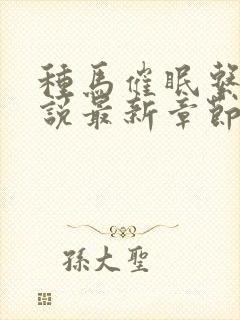 種馬催眠繫
說最新章節
孫大聖